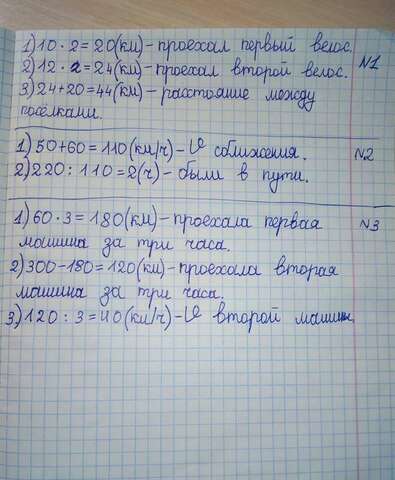 1) 10 · 2 = 20 (км) - проехал первый велос.
2) 12 · 2 = 24 (км) - проехал второй велос. №1
3) 24 + 20 = 44 (км) - расстояние между
посёлками.
1) 50 + 60 = 110 (км/ч) - V сближения. №2
2) 220 : 110 = 2 (ч) - были в пути.
1) 60 · 3 = 180 (км) - проехала первая №3
машина за три часа.
2) 300 - 180 = 120 (км) - проехала вторая
машина за три часа.
3) 120 : 3 = 40 (км/ч) - V второй машины.